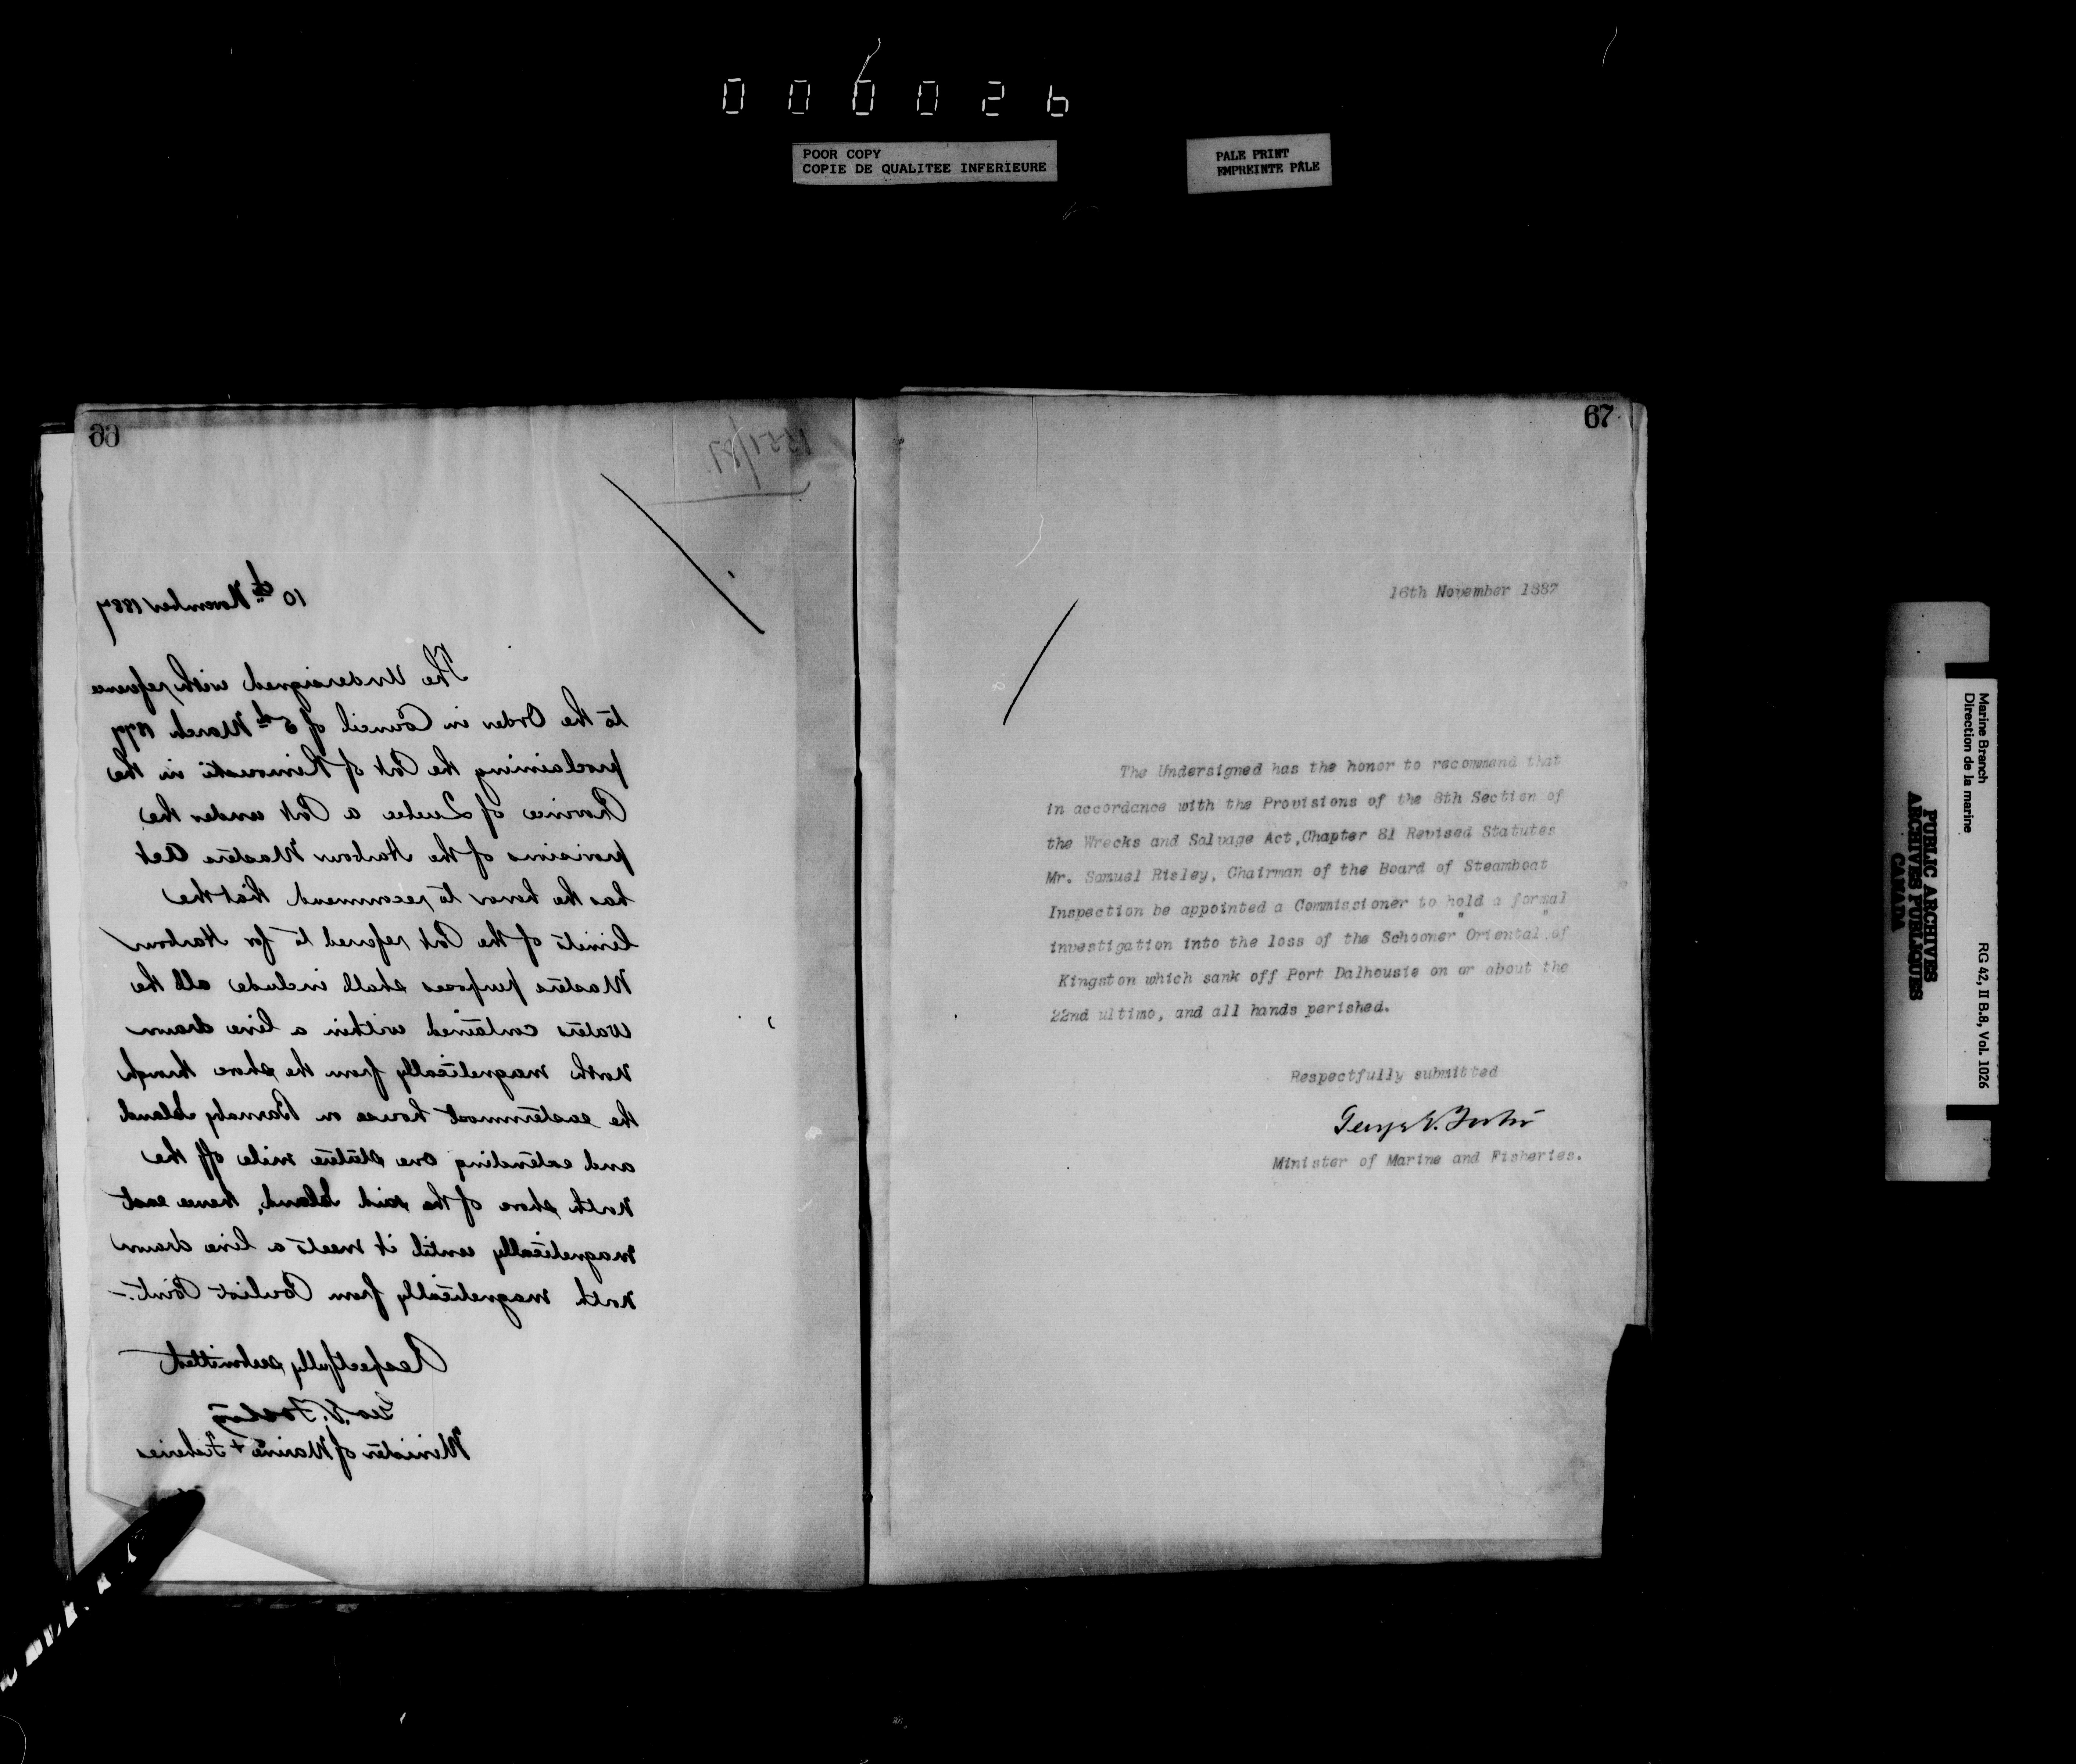 000026
POOR COPY
COPIE DE QUALITEE INFERIEURE
PALE PRINT
EMPREINTE PÂLE
66
10th November 1887
The Undersigned with reference
to the Order in Council of 5th March 1877
proclaiming the Port of Rimouski in the
Province of Quebec a Port under the
provisions of the Harbour Masters Act
has the honor to recommend that the
limits of the Port refered to for Harbour
Masters purposes shall include all the
waters contained within a line drawn
North magnetically from the shore through
the easternmost house on Barnaby Island
and extending one statute mile off the
North shore of the said Island, thence east
magnetically until it meets a line drawn
North magnetically from Point.-
Respectfully submitted
Geo. E. Foster
Minister of Marine + Fisheries
67
16th November 1887
The Undersigned has the honor to recommend that
in accordance with the Provisions of the 8th Section of
the Wrecks and Salvage Act,Chapter 81 Revised Statutes
Mr. Samuel Risley, Chairman of the Board of Steamboat
Inspection be appointed a Commissioner to hold a formal
investigation into the loss of the Schooner "Oriental" of
Kingston which sank off Port Dalhousie on or about the
22nd ultimo, and all hands perished.
Respectfully submitted
George E. Foster
Minister of Marine and Fisheries.
Marine Branch
Direction de la marine
RG 42, II B.8, Vol. 1026
PUBLIC ARCHIVES
ARCHIVES PUBLIQUES
CANADA